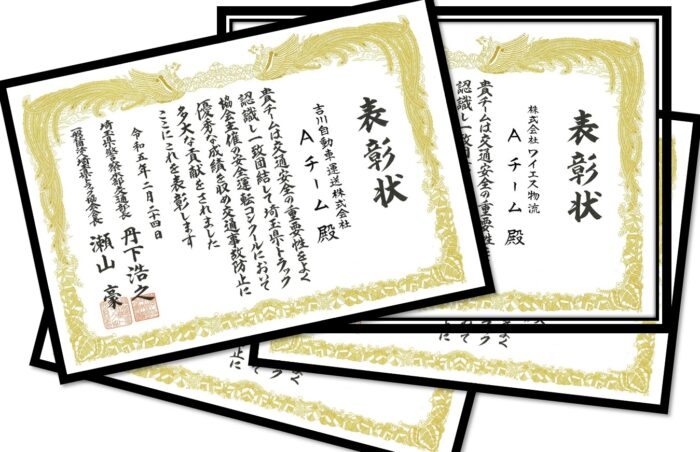 表彰状
吉川自動車運送株式会社
Aチーム殿
貴チームは交通安全の重要性をよく
認識し一致団結して埼玉県トラック
協会主催の安全運転コンクールにおいて
優秀な成績を収め交通事故防止に
多大な貢献をされました
ここにこれを表彰します
令和五年二月二十四日
埼玉県警察本部交通部長
丹下浩之
一般社団法人埼玉県トラック協会会長
瀬山豪
表彰状
株式会社ワイエス物流
Aチーム殿
貴チームは交通安全の重要性を
認識し一致団